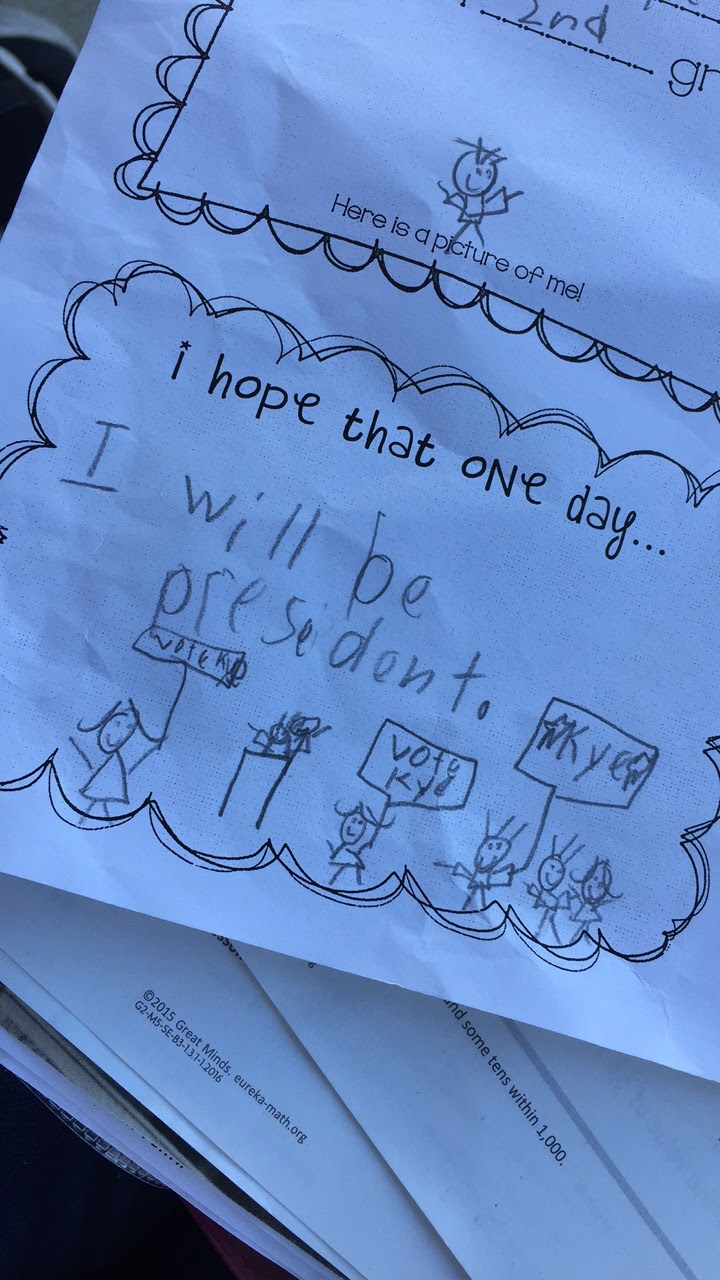 2nd
gr
Here is a picture of me!
i hope that one day...
I will be
presidant.
vote Kye
vote
Kye
Kye
©2015 Great Minds. eureka-math.org
G2-M5-SE-B3-1.3.1-1.2016
nd some tens within 1,000.